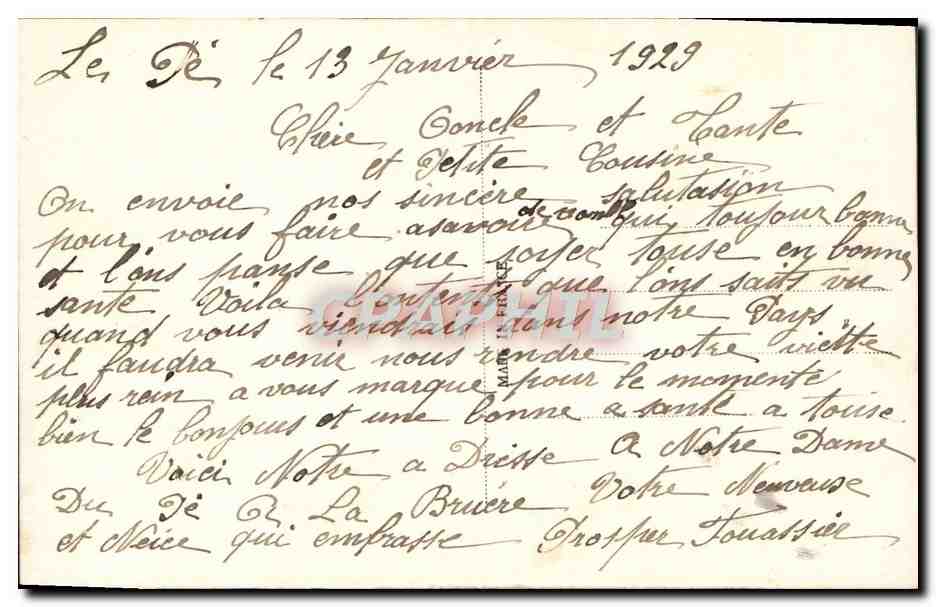 Le Pé le 13 Janvier 1929
Chère Ooncle et Tante
et Petite Cousine
On envoie nos sincère salutasion
pour vous faire asavoire de nomb qui toujour bonne
et l'ons panse que soyer touse en bonne
sante Voila lontent que l'ons saits vu
quand vous viendrais dans notre Pays
il faudra venir nous rendre votre viste
plus rein a vous marque pour le momente
bien le bonjours et une bonne a sante a touse
Voici Notre a Drisse A Notre Dame
Du Pé A La Bruére Votre Neuveuse
et Neice qui embrasse Prosper Touassier
MADE IN FRANCE
CRAPHIL